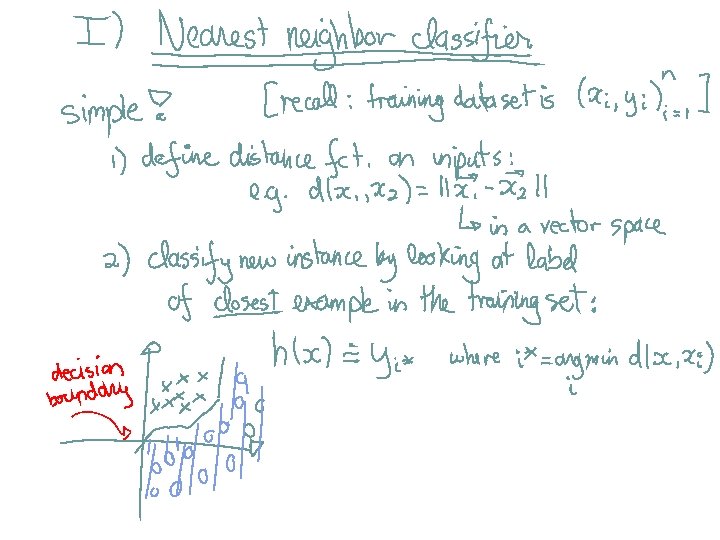 I) Nearest neighbor classifier
simple! [recall: training dataset is (xᵢ, yᵢ)ⁿᵢ₌₁]
1) define distance fct. on inputs:
e.g. d(x₁, x₂) = ||x⃗₁ - x⃗₂||
↳ in a vector space
2) classify new instance by looking at label
of closest example in the training set:
h(x) ≜ yᵢ* where i* = argmin d(x, xᵢ)
i
decision
boundary